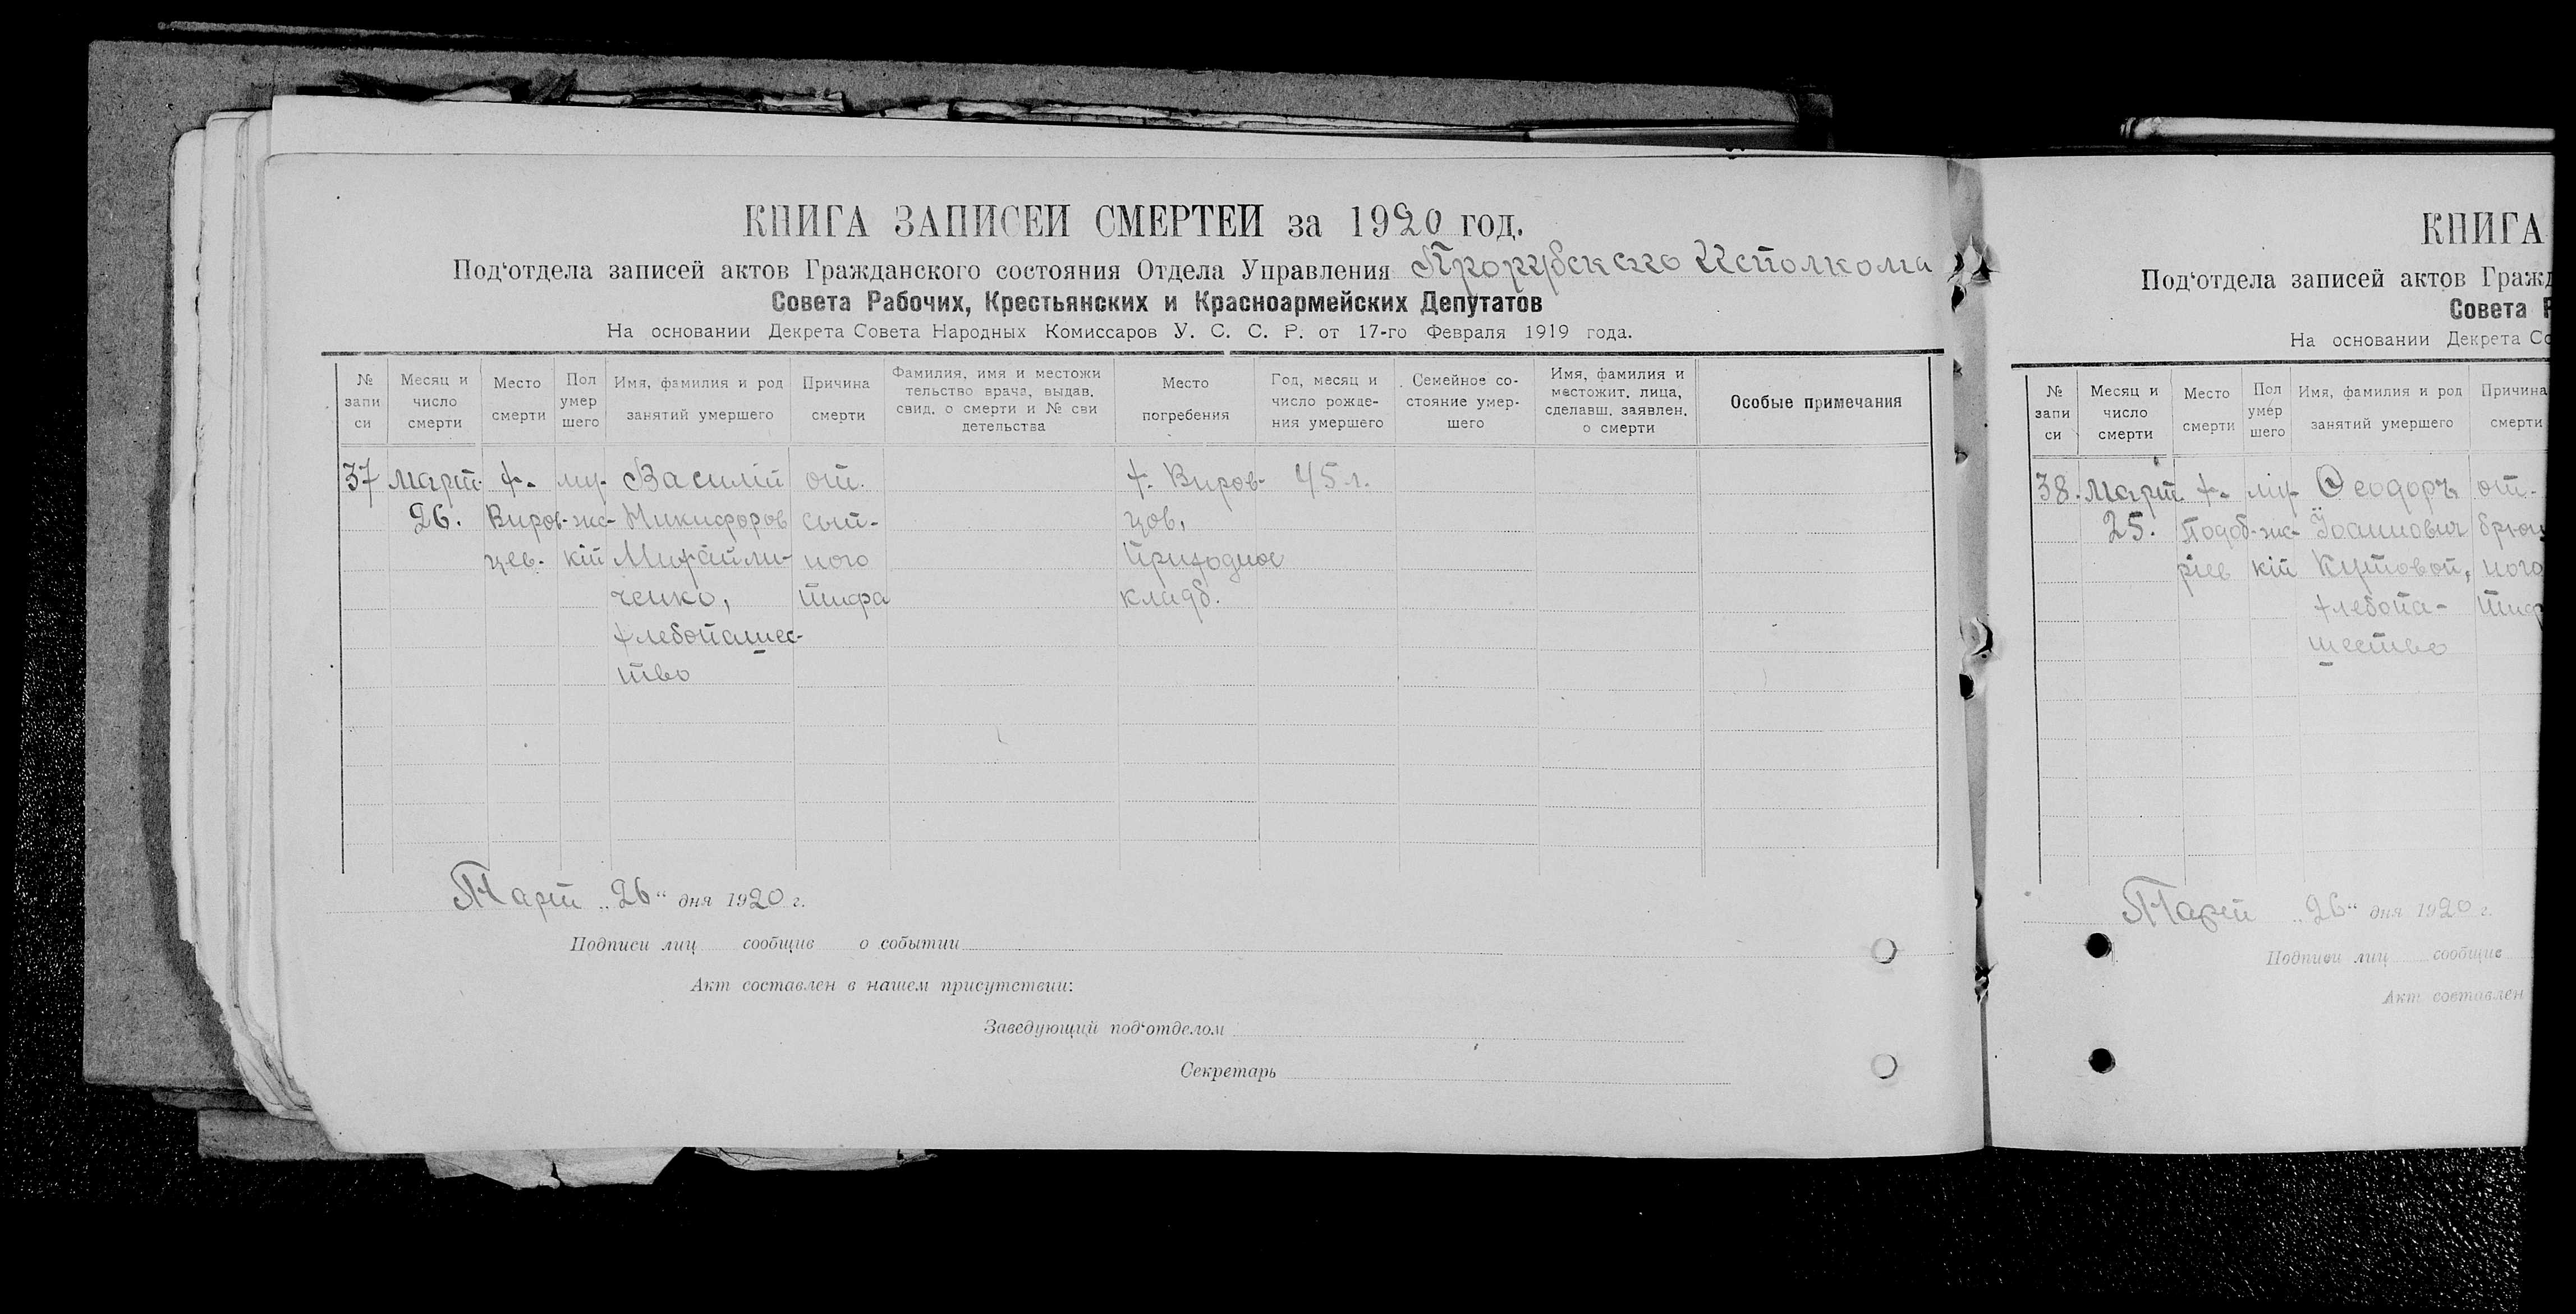 КНИГА ЗАПИСЕЙ СМЕРТЕЙ за 1920 год.
Под‘отдела записей актов Гражданского состояния Отдела Управления Прорубского Исполкома
Совета Рабочих, Крестьянских и Красноармейских Депутатов
На основании Декрета Совета Народных Комиссаров У. С. С. Р. от 17-го Февраля 1919 года.
№ запи си
Месяц и число смерти
Место смерти
Пол умер шего
Имя, фамилия и род занятий умершего
Причина смерти
Фамилия, имя и местожи тельство врача, выдав. свид. о смерти и № сви детельства
Место погребения
Год, месяц и число рожде- ния умершего
Семейное со- стояние умер- шего
Имя, фамилия и местожит. лица, сделавш. заявлен. о смерти
Особые примечания
37 март. х. му- Василій от. х. Виров- 45 л.
26. Виров- жс- Никифоров сып- цов,
цев. кій Михайли- ного Приходное
ченко, тифа кладб.
хлебопашес-
тво
Март „26“ дня 1920 г.
Подписи лиц сообщив о событии
Акт составлен в нашем присутствии:
Заведующий под‘отделом
Секретарь
КНИГА
Под‘отдела записей актов Гражд
Совета Р
На основании Декрета Со
№ запи си
Месяц и число смерти
Место смерти
Пол умер шего
Имя, фамилия и род занятий умершего
Причина смерти
38. март. х. му- Ѳеодоръ от-
25. Подоб- жс- Іоаннович брюш
ріев кій Кутовой, ного
хлебопа- тиф
шество
Март „26“ дня 1920 г.
Подписи лиц сообщив
Акт составлен